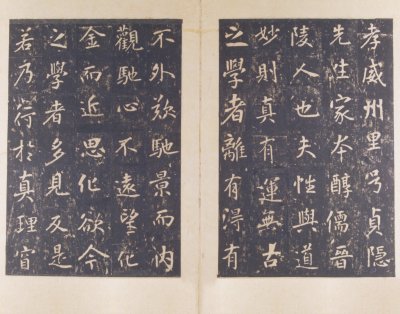 孝威州里号貞隱
先生家本醇儒晉
陵人也夫性與道
妙則真有運無古
之學者離有淂有
不外馳景而内
觀馳心不遠望化
金而近思化欲今
之學者多見反是
若乃行於真理窅